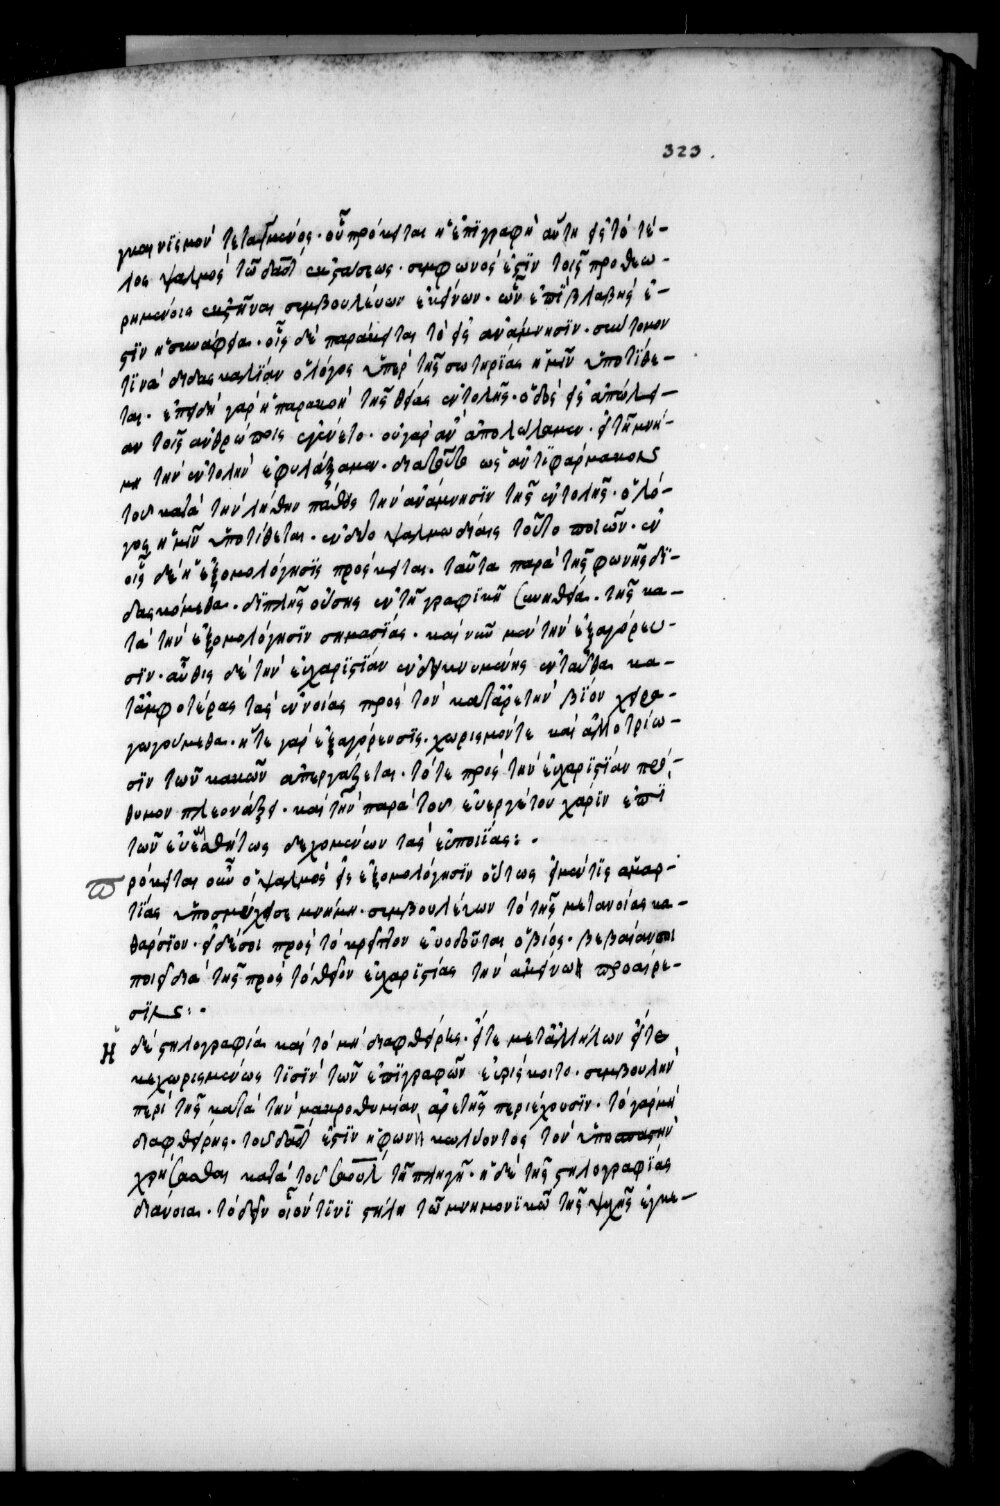 323.
γκαινισμὸν τεταγμένος· οὗ πρόκειται ἡ ἐπιγραφὴ αὕτη εἰς τὸ τέ-
λος ψαλμὸς τῷ δαδ ἐκστάσεως· σύμφωνός ἐστιν τοῖς προθεω-
ρημένοις ἐκστῆναι συμβουλεύων ἐκείνων· ὧν ἐπιβλαβής ἐ-
στιν ἡ συνάφεια· οἷς δὲ παράκειται τὸ εἰς ἀνάμνησιν· σύντομον
τινὰ διδασκαλίαν ὁ λόγος ὑπὲρ τῆς σωτηρίας ἡμῖν ὑποτίθε-
ται· ἐπειδὴ γὰρ ἡ παρακοὴ τῆς θείας ἐντολῆς· ὁδὸς εἰς ἀπώλει-
αν τοῖς ἀνθρώποις ἐγένετο· οὐ γὰρ ἂν ἀπολώλαμεν· εἰ τῇ μνή-
μῃ τὴν ἐντολὴν ἐφυλάξαμεν· διατοῦτο ὡς ἀντιφάρμακον
τοῦ κατὰ τὴν λήθην πάθος τὴν ἀνάμνησιν τῆς ἐντολῆς· ὁ λό-
γος ἡμῖν ὑποτίθεται· ἐν δύο ψαλμωδίαις τοῦτο ποιῶν· ἐν
οἷς δὲ ἡ ἐξομολόγησις πρόσκειται· ταῦτα παρὰ τῆς φωνῆς δι-
δασκόμεθα· διπλῆς οὔσης ἐν τῇ γραφικῇ συνηθεία· τῆς κα-
τὰ τὴν ἐξομολόγησιν σημασίας· καὶ νῦν μὲν τὴν ἐξαγόρευ-
σιν· αὖθις δὲ τὴν εὐχαριστίαν ἐνδεικνυμένης ἐνταῦθα κα-
τἀμφοτέρας τὰς ἐννοίας πρὸς τὸν κατἀρετὴν βίον χειρα-
γωγούμεθα· ἥτε γὰρ ἐξαγόρευσις· χωρισμόντε καὶ ἀλλοτρίω-
σιν τῶν κακῶν ἀπεργάζεται· τότε πρὸς τὴν εὐχαριστίαν πρό-
θυμον πλεονάζει· καὶ τὴν παρὰ τοῦ εὐεργέτου χάριν ἐπὶ
τῶν εὐεαθήτως δεχομένων τὰς εὐποιΐας:·
πρόκειται οὖν ὁ ψαλμὸς εἰς ἐξομολόγησιν οὕτως εἰ μέν τις ἁμαρ-
τίας ὑποσμύχει σε μνήμη· συμβουλεύων τὸ τῆς μετανοίας κα-
θάρσιον· εἰ δέ σοι πρὸς τὸ κρεῖττον εὐοδοῦται ὁ βίος· βεβαίαν σοι
ποιεῖ διὰ τῆς πρὸς τὸ θεῖον εὐχαριστίας τὴν ἀμείνω προαίρε-
σιν:·
Ἡ δὲ στηλογραφία καὶ τὸ μὴ διαφθείρῃς· εἴτε μετἀλλήλων εἴτε
κεχωρισμένως τισὶν τῶν ἐπιγραφῶν εὑρίσκοιτο· συμβουλὴν
περὶ τῆς κατὰ τὴν μακροθυμίαν ἀρετῆς περιέχουσιν· τὸ γὰρ μὴ
διαφθείρῃς· τοῦ δαδ ἐστὶν ἡ φωνὴ κωλύοντος τὸν ὑπασπιστὴν
χρήσασθαι κατὰ τοῦ σαοὺλ τῇ πληγῇ· ἡ δὲ τῆς στηλογραφίας
διάνοια· τὸ δεῖν οἷόν τινι στήλῃ τῷ μνημονικῷ τῆς ψυχῆς ἐγκε-